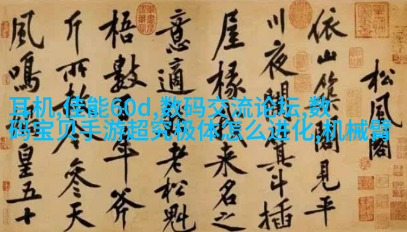 松風閣
依山築閣見平
川夜闌箕斗插
屋椽來名之
意適老松魁
梧數年斧
斤所今參天
風鳴皇五十
耳机,佳能60d,数码交流论坛,数
码宝贝手游超究极体怎么进化,机械臂